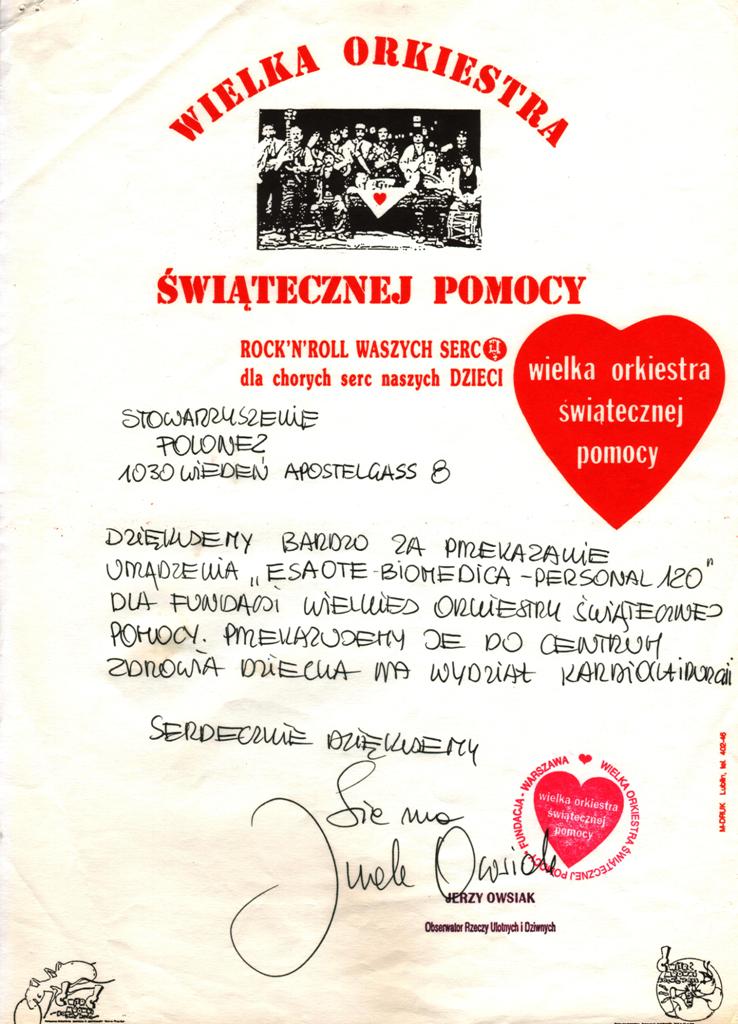 WIELKA ORKIESTRA
ŚWIĄTECZNEJ POMOCY
ROCK'N'ROLL WASZYCH SERC
dla chorych serc naszych DZIECI
wielka orkiestra
świątecznej
pomocy
STOWARZYSZENIE
POLONEZ
1030 WIEDEŃ APOSTELGASS 8
DZIĘKUJEMY BARDZO ZA PRZEKAZANIE
URZĄDZENIA „ESAOTE-BIOMEDICA-PERSONAL 120"
DLA FUNDACJI WIELKIEJ ORKIESTRY ŚWIĄTECZNEJ
POMOCY. PRZEKAZUJEMY JE DO CENTRUM
ZDROWIA DZIECKA NA WYDZIAŁ KARDIOCHIRURGII
SERDECZNIE DZIĘKUJEMY
Sie ma
Jurek Owsiak
FUNDACJA - WARSZAWA WIELKA ORKIESTRA ŚWIĄTECZNEJ POMOCY
wielka orkiestra
świątecznej
pomocy
JERZY OWSIAK
Obserwator Rzeczy Ulotnych i Dziwnych
M-DRUK Lublin, tel. 402-46